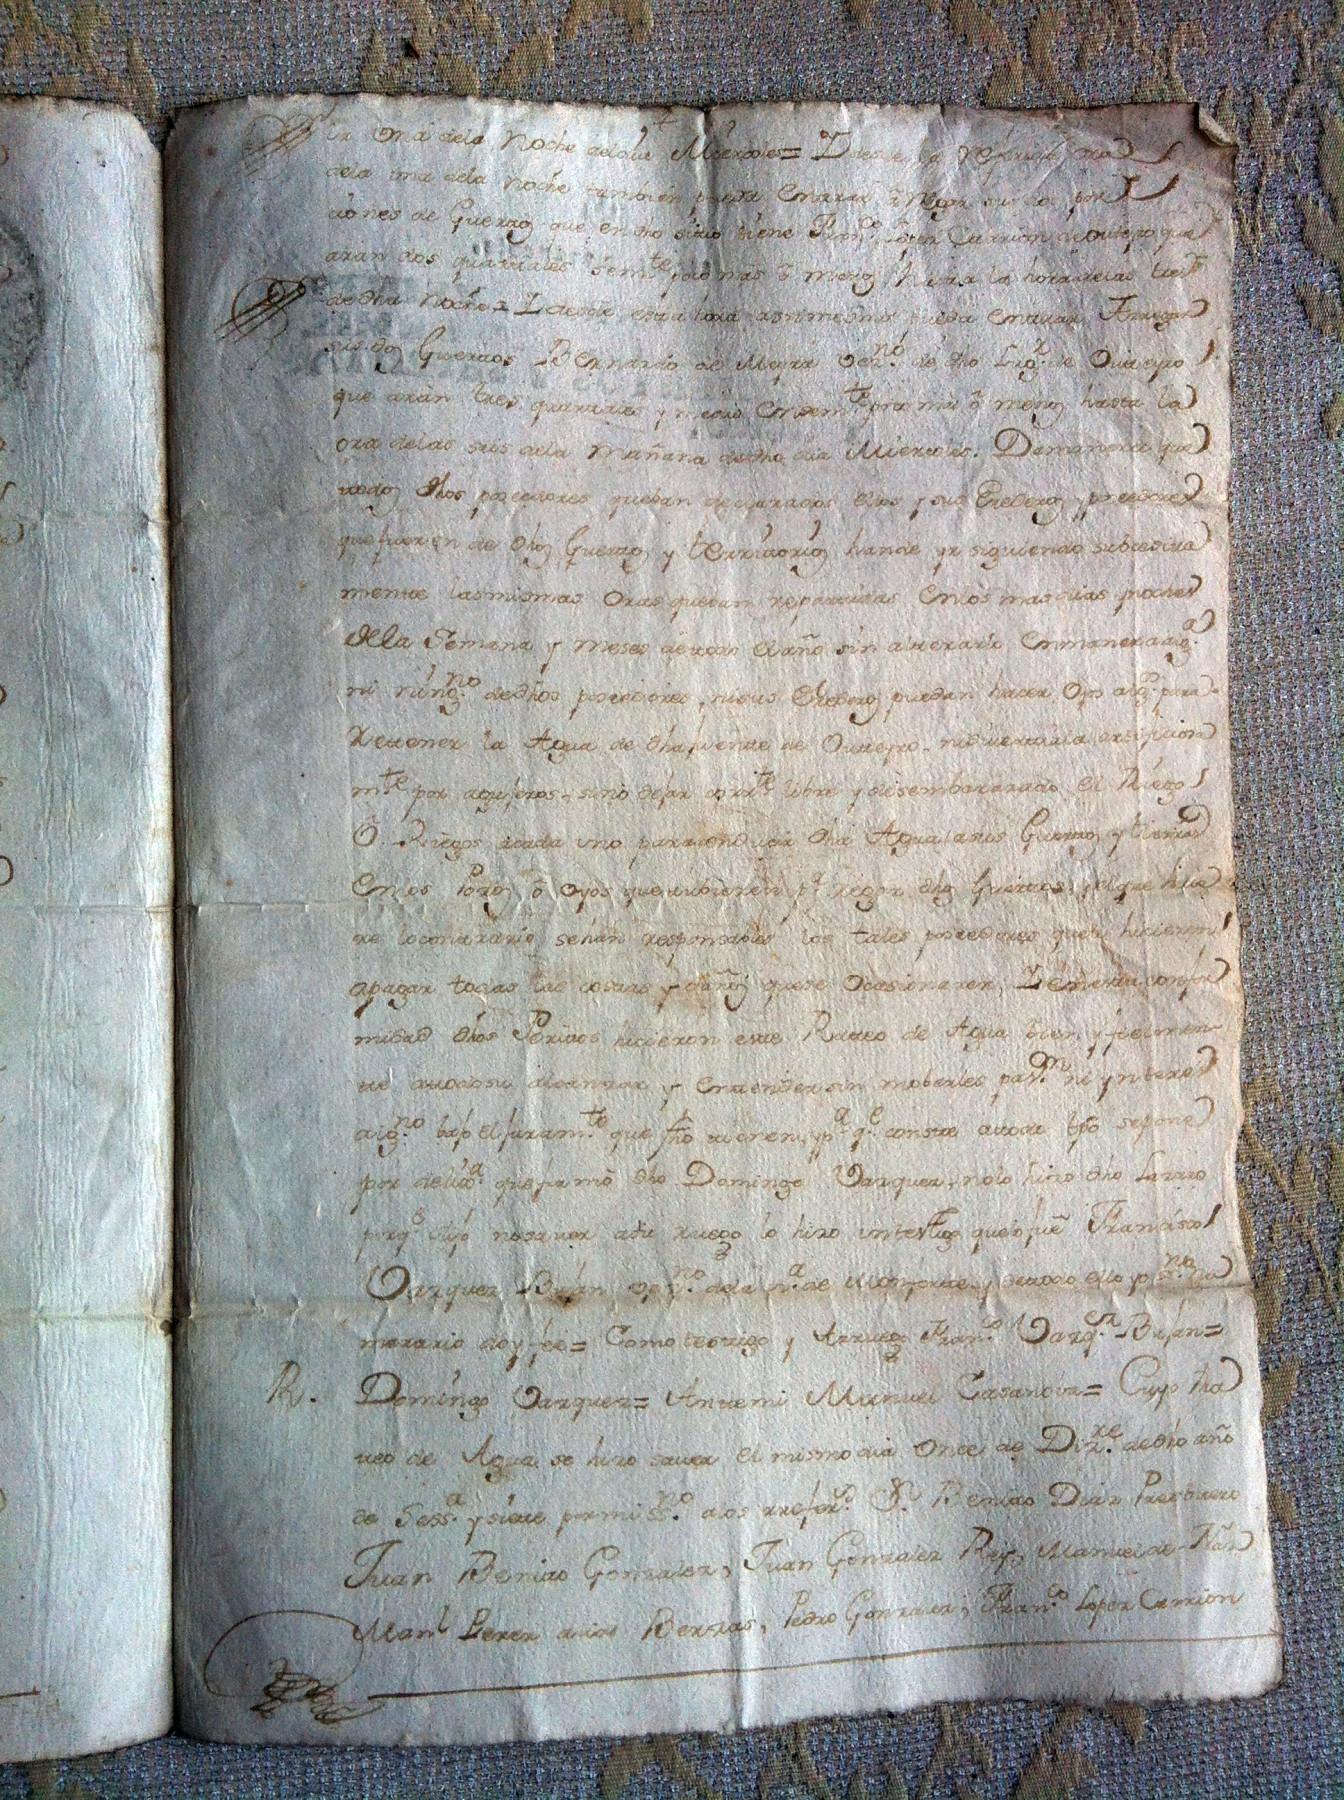 la ona dela Noche deldho Miercoles= Y desde la referida ora
dela una dela Noche tambien pueda entrar à Regar sus dos por
ciones de Guertas que en dho sitio tiene Franco Lopez Carrion de Outeyro que
aran dos quartales semte poco mas ô menos hasta la hora delas tres
de dha Noche= Y desde esta hora assimesmo pueda entrar A rregar
sus dos Guertos Bernardo de Meyra Vezno de dho Lugr de Outeyro
que arán tres quartales y medio en semte poco mas ô menos hasta la
ora delas seis dela Mañana de dho dia Miercoles. De manera que
todos dhos poseedores quedan declarados ellos y sus Erederos y poseedores
que fueren de dhos Guertos y territorios hande yr siguiendo subcesiva
mente las mismas Oras quedan repartidas en los mas dias y noches
dela Semana y meses de todo el año sin alterarlo en manera alga
ni ningno de dhos poseedores, ni sus Erederos puedan hacer Ojos algs para
Retener la Agua de dha fuente de Outeyro, ni divertirla artificiosa
mte por agujeros, sino dejar corrte libre y desembarazado el Riego
Ô Riegos acada uno para conducir dha Agua asus Guertos y tierras
En los Pozos ô Ojos que tubieren pa regar dhos Guertos, y el que hicie
re lo contrario serán responsables los tales poseedores que lo hicieren
apagar todas las costas y daños que se ocasionaren. Y en esta confor
midad dhos Peritos hicieron este Rateo de Agua bien y fielmen
te atodo su alcanzar y entender sin mobarles pasⁿ ni ynteres
algno bajo el juramto que fho tienen, y pa qe conste atodo tpo se pone
por deliga que firmó dho Domingo Vazquez, nolo hizo dho Lazaro
porqe dijo no saver asu ruego lo hizo un testigo que lo fué Francisco
Vazquez Biján vezno dela va de Monforte y de todo ello yo Essno nu
merario doy fee= Como testigo y Arruego Franco Vazqez Biján=
R. Domingo Vazquez= Antemi Manuel Casanova= Cuyo Ra
teo de Agua se hizo saver el mismo dia Once de Dizre de dho año
de Sessa y siete por mi ssno alos rrefers Dn Benito Diaz Presbitero
Juan Benito Gonzalez, Juan Gonzalez Reyo, Manuel de
Manl Perez de las Berzas, Pedro Gonzalez, Franco Lopez Carrion